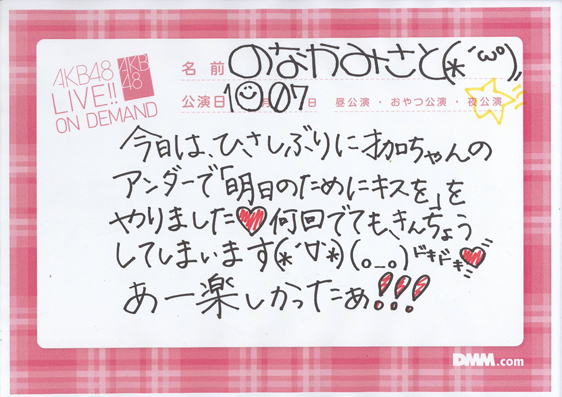 AKB48
LIVE!!
ON DEMAND
AKB
48
名前 のなかみさと(*´ω`)
公演日 10月07日 昼公演・おやつ公演・夜公演
今日は、ひさしぶりに加ちゃんの
アンダーで「明日のためにキスを」を
やりました♥何回でても、きんちょう
してしまいます(*´∀`*)(o_o)ドキドキ♥
あー楽しかったぁ!!!
DMM.com